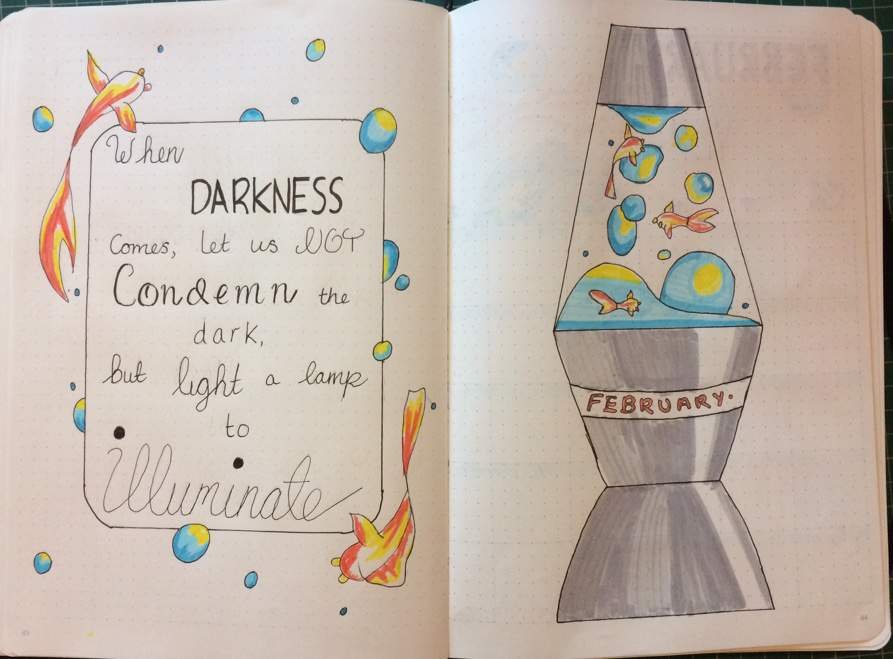 When
DARKNESS
Comes, let us NOT
Condemn the
dark,
but light a lamp
to
Illuminate
FEBRUARY.